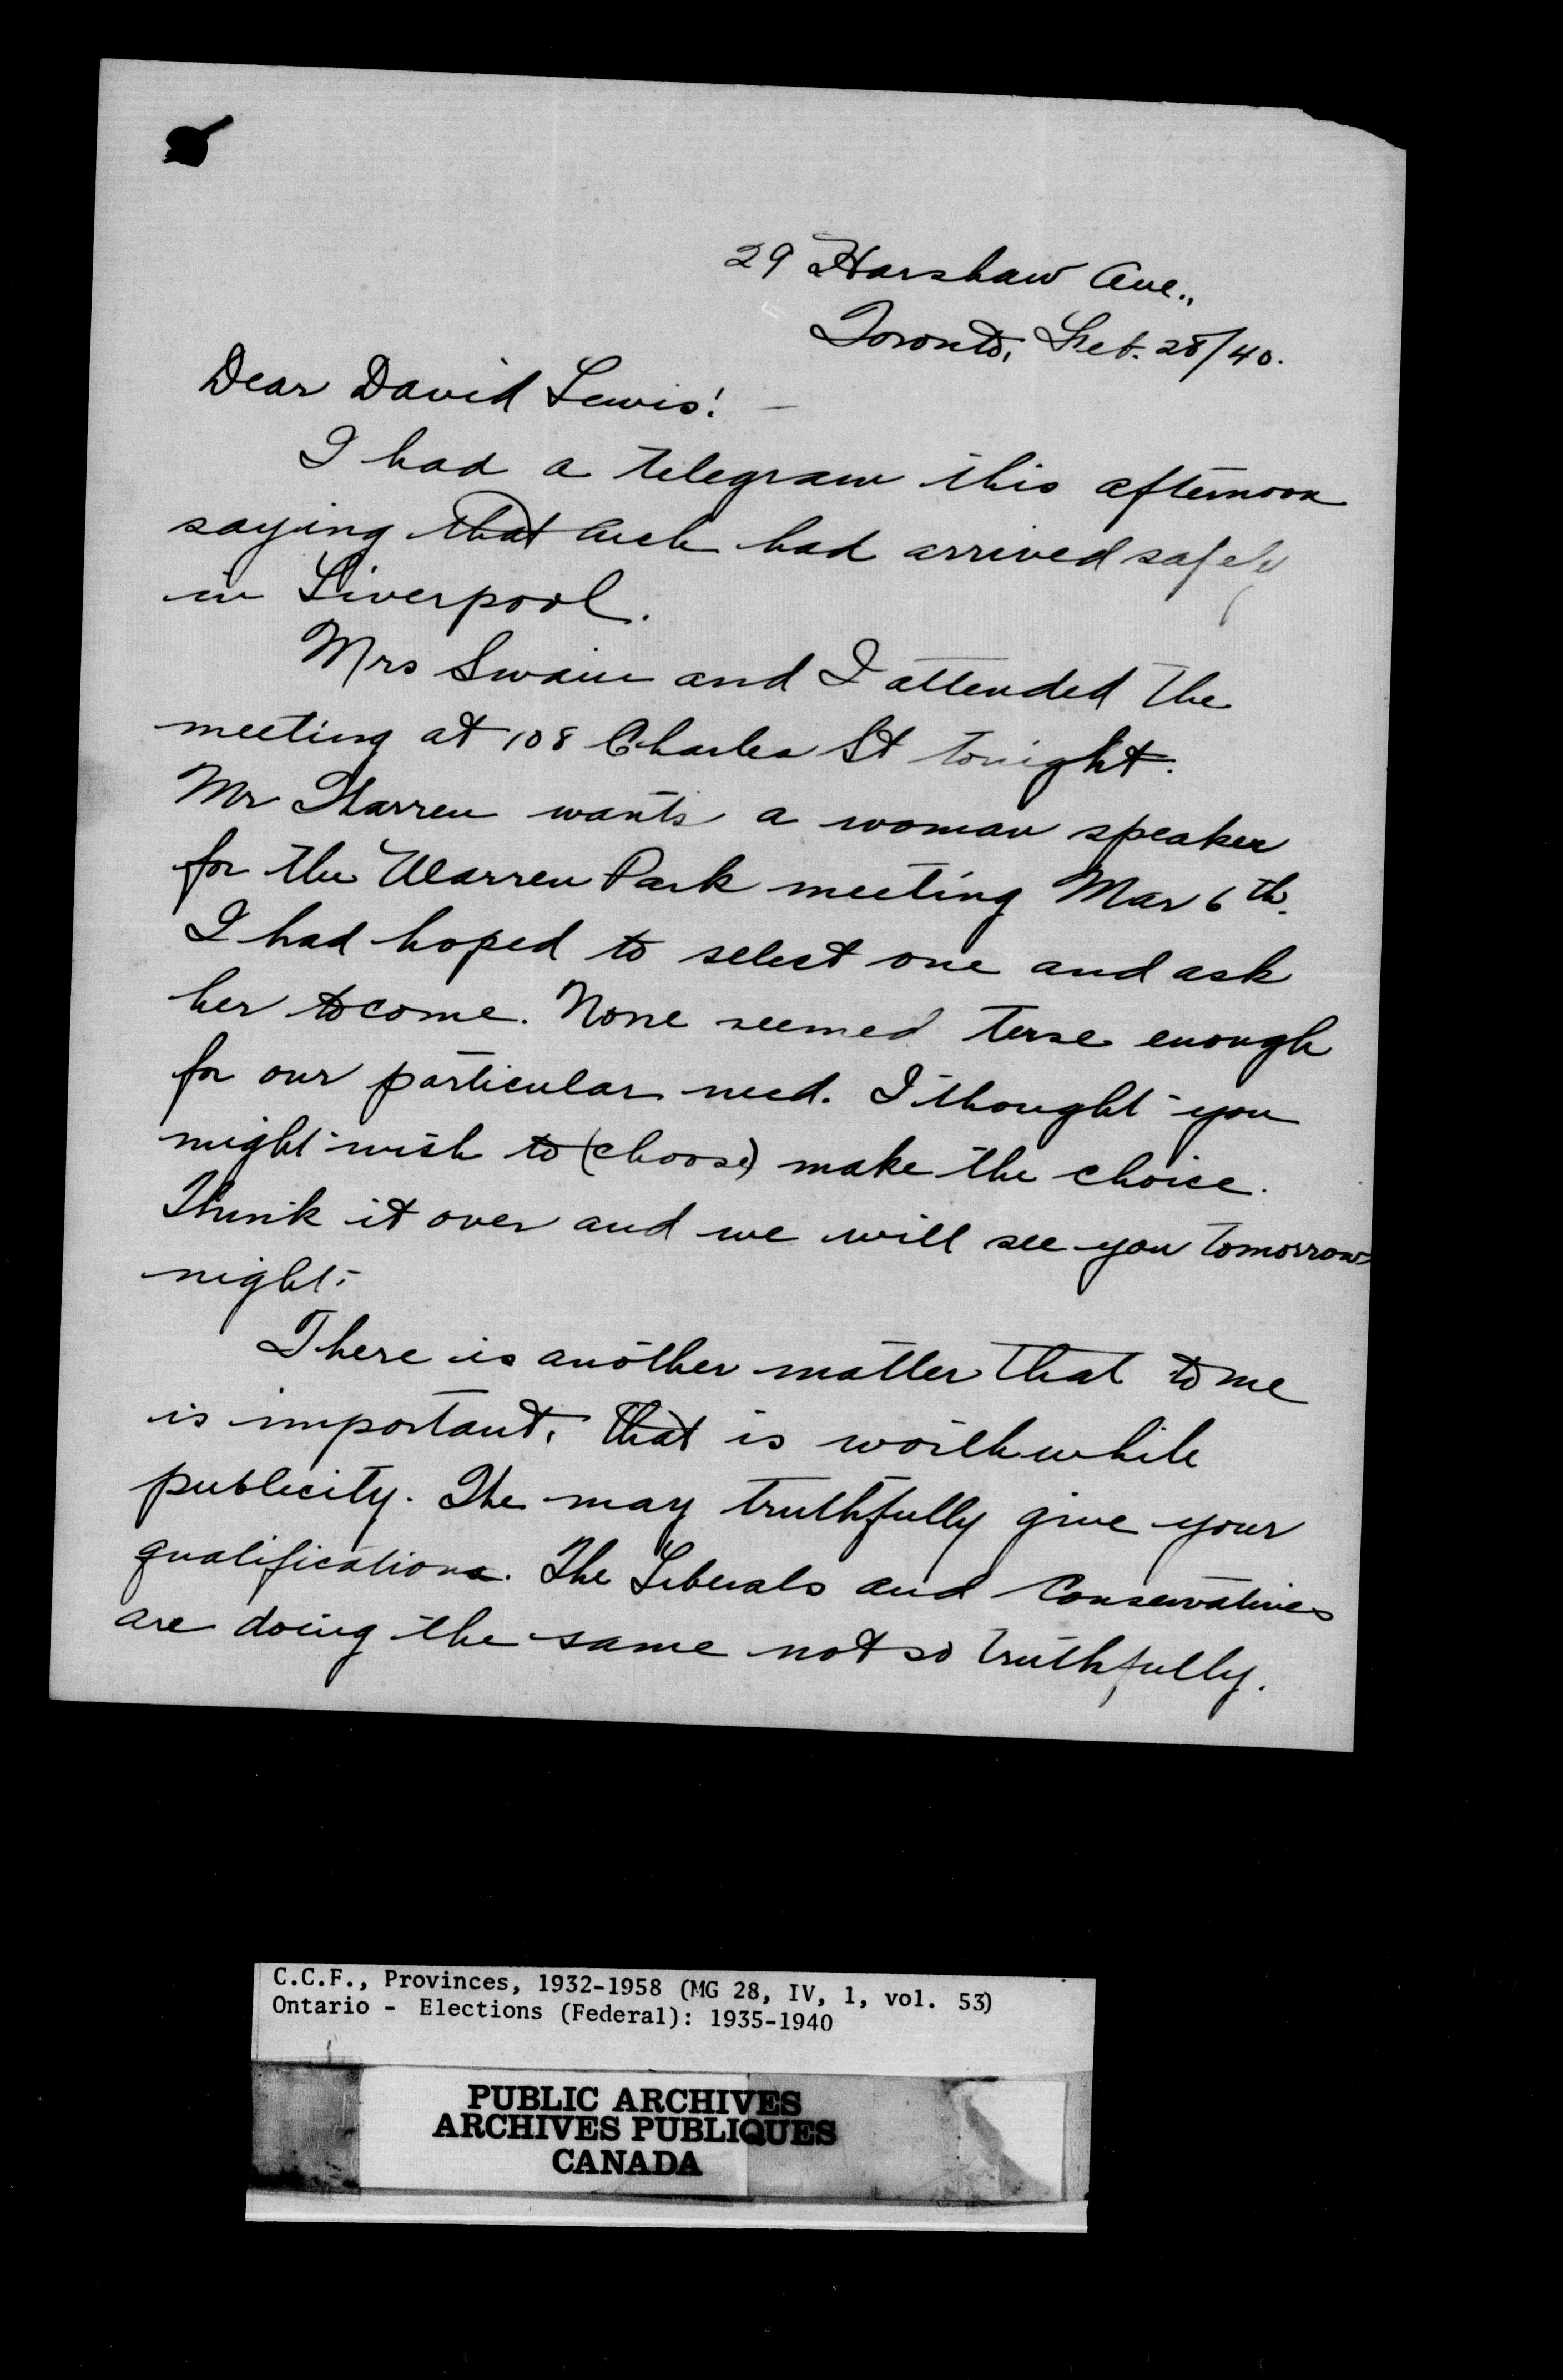 29 Harshaw Ave.,
Toronto, Feb. 28/40.
Dear David Lewis! —
I had a telegram this afternoon
saying that Arch had arrived safely
in Liverpool.
Mrs Swain and I attended the
meeting at 108 Charles St tonight.
Mr Warren wants a woman speaker
for the Warren Park meeting Mar 6th.
I had hoped to select one and ask
her to come. None seemed terse enough
for our particular need. I thought you
might wish to (choose) make the choice.
Think it over and we will see you tomorrow
night.
There is another matter that to me
is important. That is worth while
publicity. We may truthfully give your
qualifications. The Liberals and Conservatives
are doing the same not so truthfully.
C.C.F., Provinces, 1932-1958 (MG 28, IV, 1, vol. 53)
Ontario - Elections (Federal): 1935-1940
PUBLIC ARCHIVES
ARCHIVES PUBLIQUES
CANADA